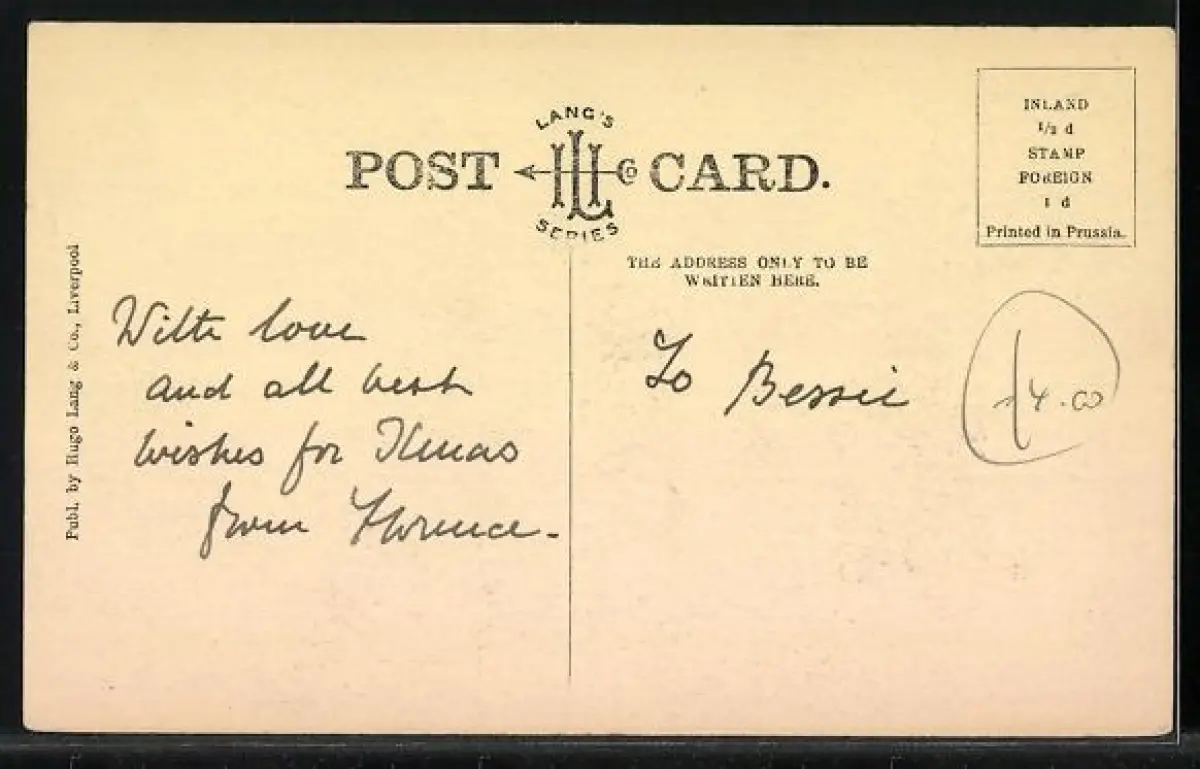 LANG'S
POST HLL Co CARD.
SERIES
INLAND
1/2 d
STAMP
FOREIGN
1 d
Printed in Prussia.
THE ADDRESS ONLY TO BE
WRITTEN HERE.
Publ. by Hugo Lang & Co., Liverpool
With love
and all best
wishes for Xmas
from Florence.
To Bessie
4.00